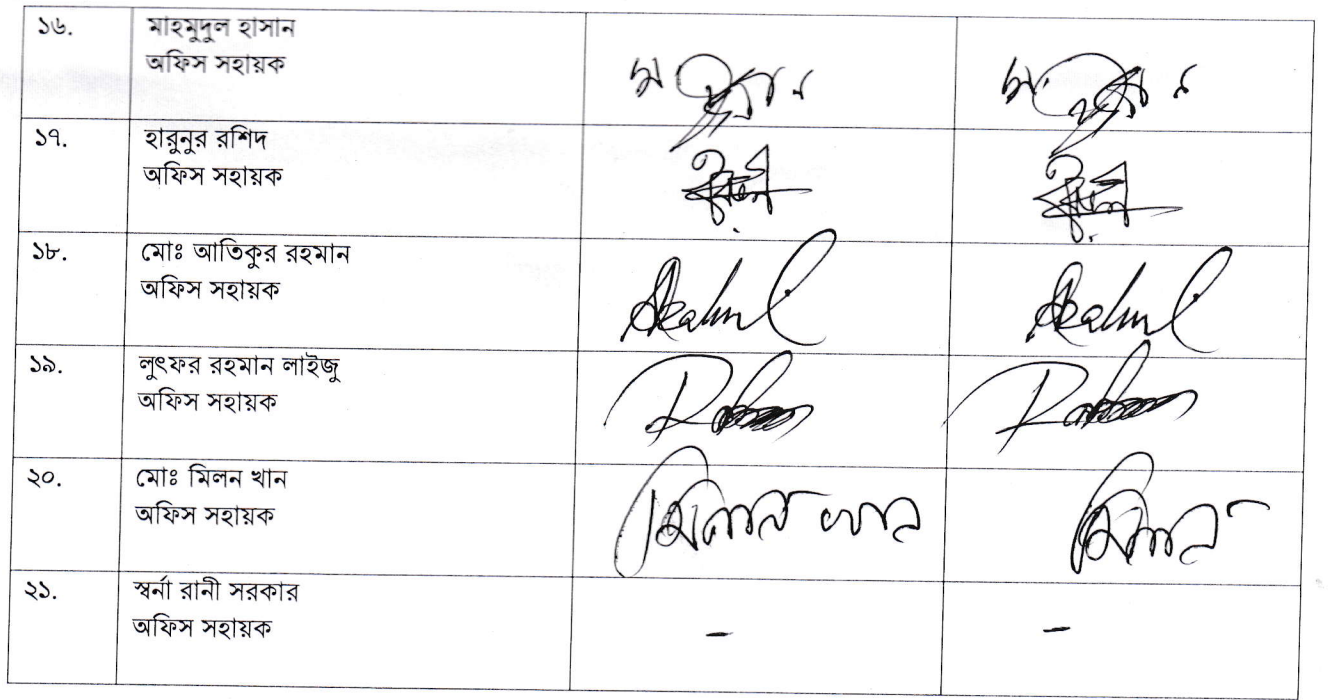 ১৬.
মাহমুদুল হাসান
অফিস সহায়ক
১৭.
হারুনুর রশিদ
অফিস সহায়ক
১৮.
মোঃ আতিকুর রহমান
অফিস সহায়ক
১৯.
লুৎফর রহমান লাইজু
অফিস সহায়ক
২০.
মোঃ মিলন খান
অফিস সহায়ক
মিলন খান
মিলন
২১.
স্বর্না রানী সরকার
অফিস সহায়ক
-
-